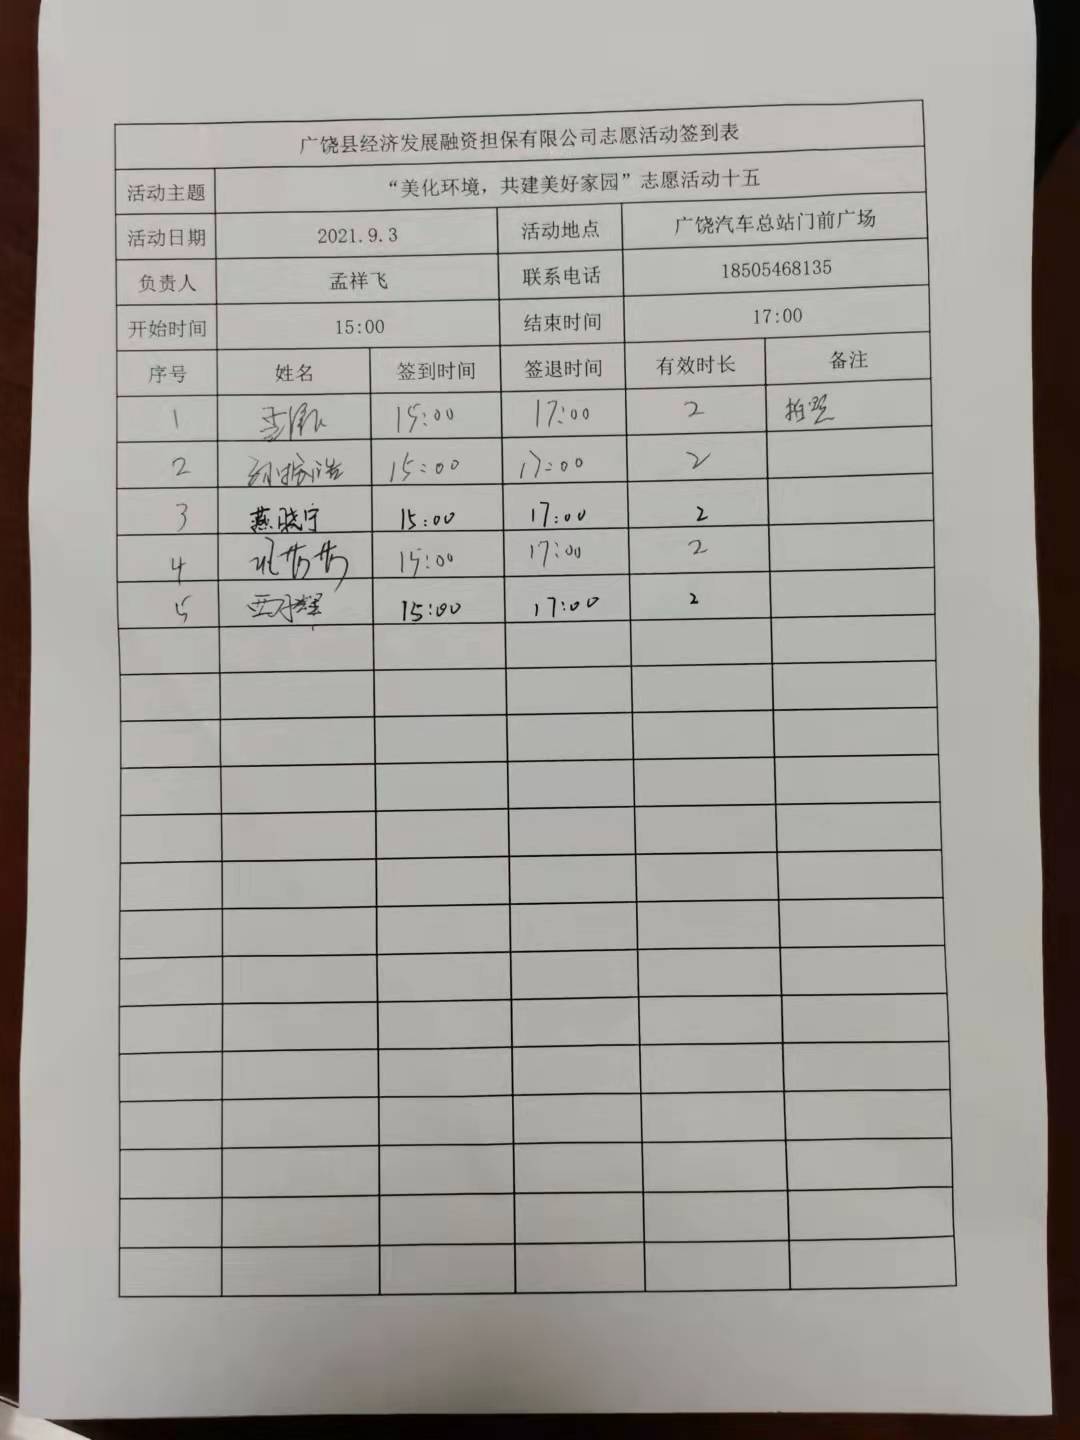 广饶县经济发展融资担保有限公司志愿活动签到表
活动主题 “美化环境，共建美好家园”志愿活动十五
活动日期 2021.9.3 活动地点 广饶汽车总站门前广场
负责人 孟祥飞 联系电话 18505468135
开始时间 15:00 结束时间 17:00
序号 姓名 签到时间 签退时间 有效时长 备注
1 15:00 17:00 2 拍照
2 15:00 17:00 2
3 燕晓宁 15:00 17:00 2
4 15:00 17:00 2
5 15:00 17:00 2